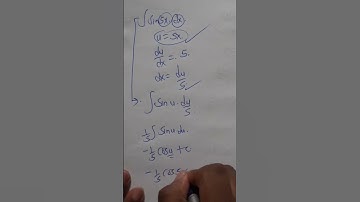 ∫ Sin 5x · dx
u = 5x
du/dx = 5.
dx = du/5
∫ Sin u · du/5
1/5 ∫ Sin u du.
-1/5 cos u + c
-1/5 cos